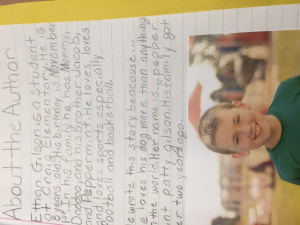 About the Author
Ethan Gilson is a student
at Craig Elementary. He is
years old. November
his family he has Mommy,
Daddoo, and his brother Jacob,
and Peppermint. He loves loves
loves sports especially
football and basketball.
e wrote this story beacause...
e loves his dog more than anything
n the world. Her name is pepper
nt patty Gilson. His family got
er two years ago.